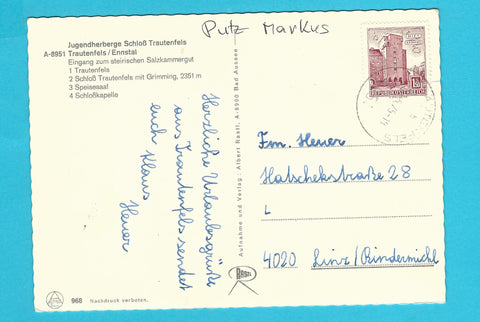 Putz Markus
Jugendherberge Schloß Trautenfels
A-8951 Trautenfels / Ennstal
Eingang zum steirischen Salzkammergut
1 Trautenfels
2 Schloß Trautenfels mit Grimming, 2351 m
3 Speisesaal
4 Schloßkapelle
Herzliche Urlaubsgrüße
aus Trautenfels sendet
euch Klaus
Heuer
Aufnahme und Verlag: Albert Rastl, A-8990 Bad Aussee
RASTL
REPUBLIK ÖSTERREICH
Fm. Heuer
Hatschekstraße 28
L
4020 Linz/Rindermichl
968 Nachdruck verboten.